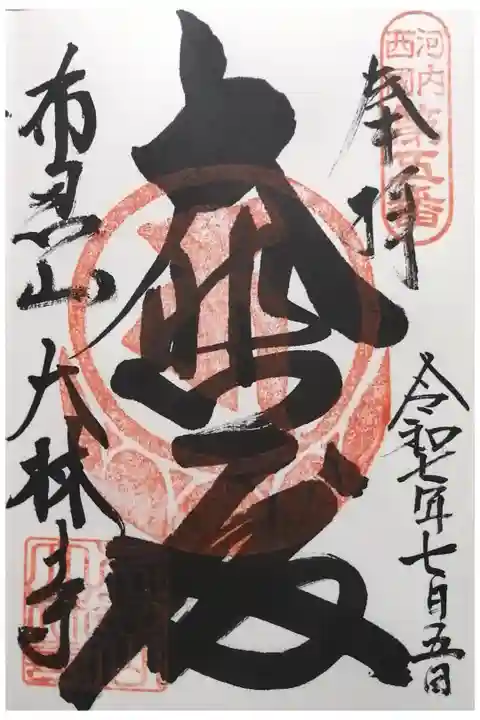 河内
西国
第五番
奉拝
令和七年七月五日
大悲殿
布忍山 大林寺